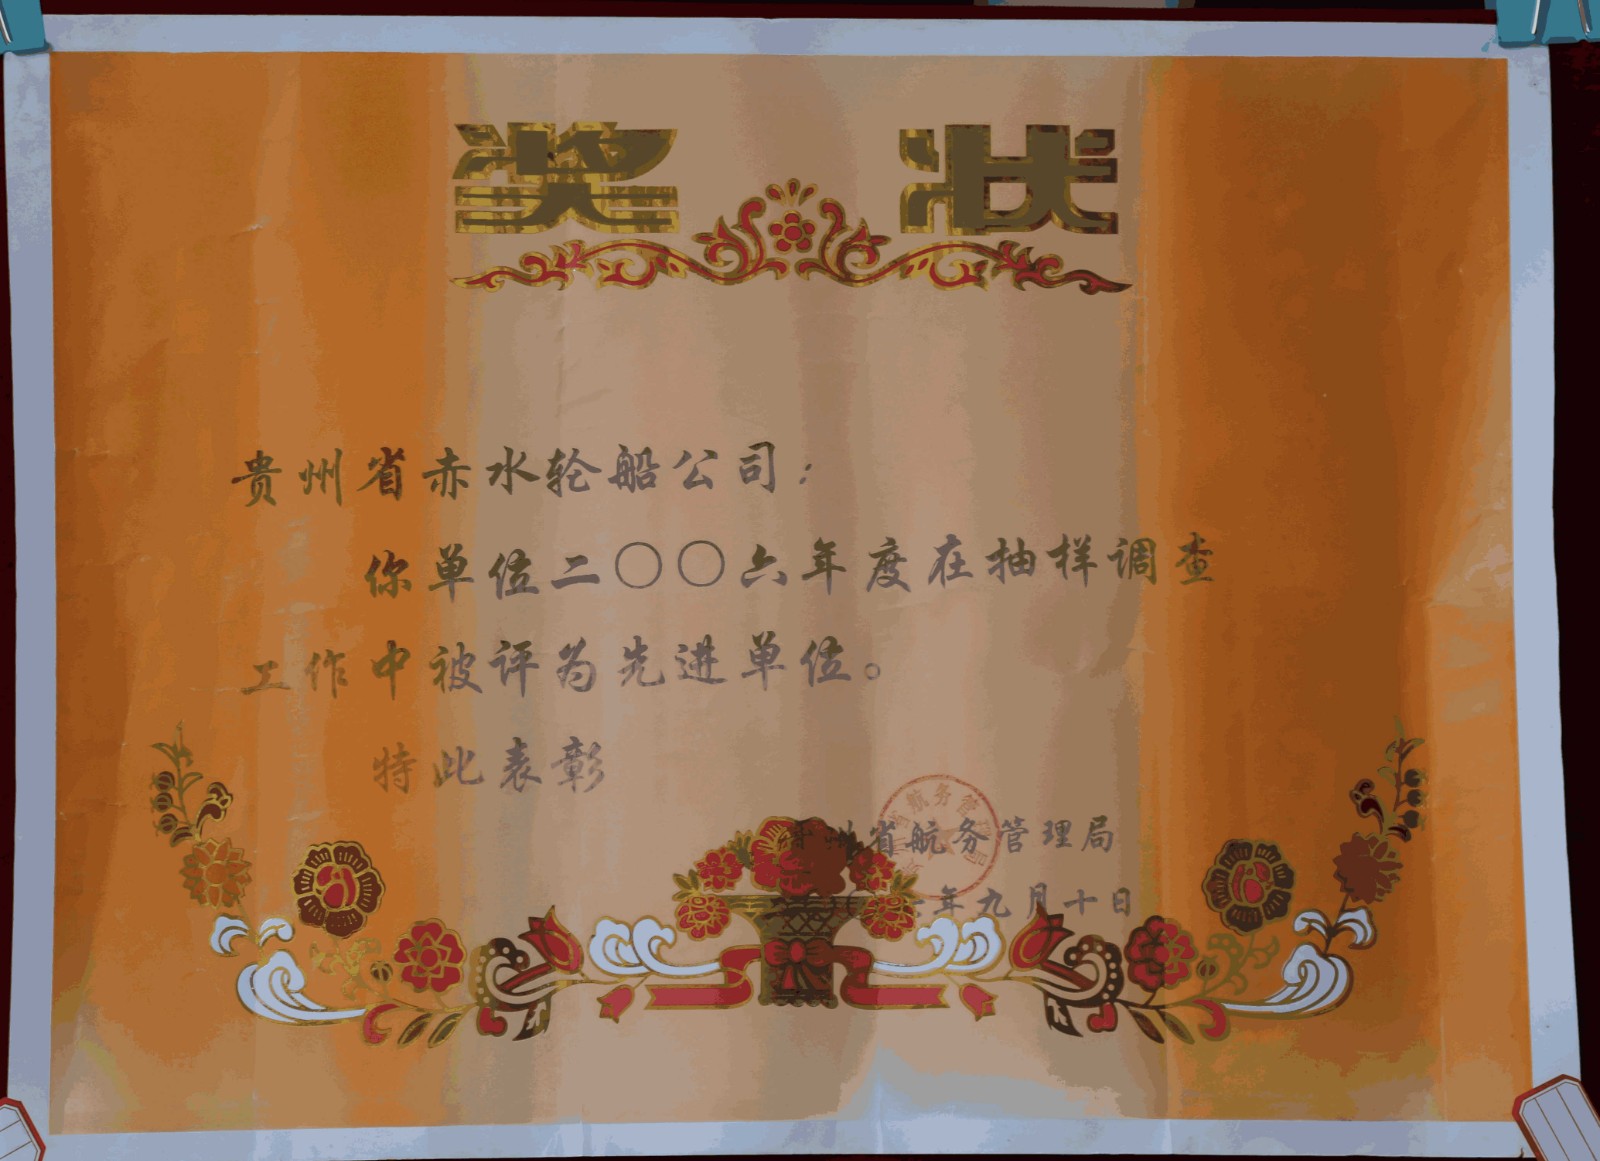 奖状
贵州省赤水轮船公司：
你单位二〇〇六年度在抽样调查
工作中被评为先进单位。
特此表彰
贵州省航务管理局
年九月十日
航务管理